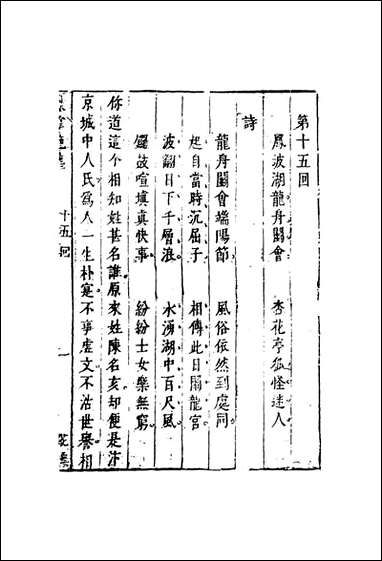 第十五回
鳳波湖龍舟鬪會　杏花亭狐怪迷人
詩
龍舟鬪會端陽節　風俗依然到處同
起自當時沉屈子　相傳此日鬧龍宮
波翻日下千層浪　水湧湖中百尺風
鑼鼓喧填真快事　紛紛士女樂無窮
你道這个相知姓甚名誰原來姓陳名亥却便是汴
京城中人氏爲人一生朴寔不事虛文不沽世譽相
十五回